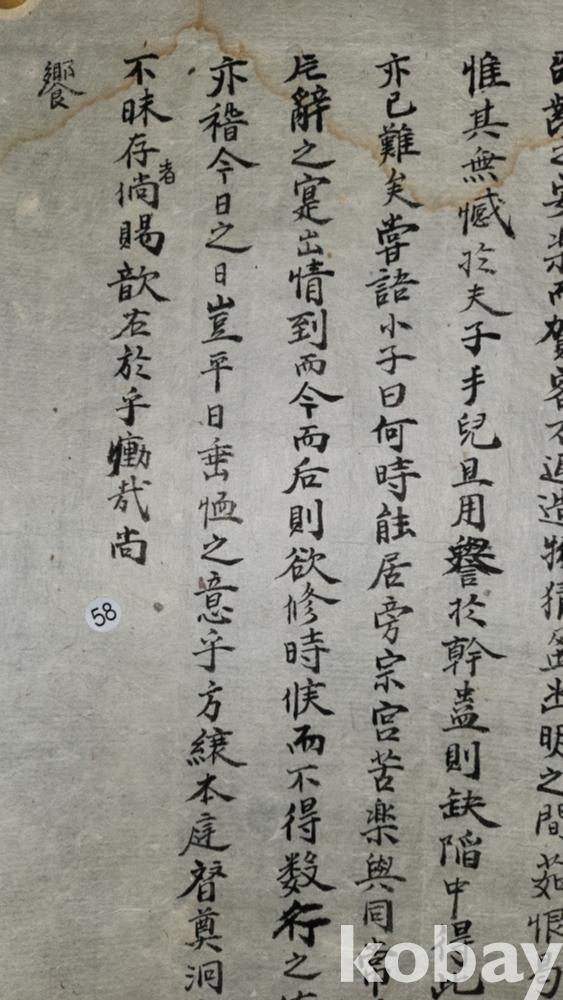 之安樂而賀客不造物猜盈出明之間茹恨
惟其無憾於夫子手兒且用譽於幹蠱則缺陷中得此
亦已難矣嘗語小子曰何時能居旁宗宮苦樂與同常
辭之寔出情到而今而后則欲修時候而不得数行之
亦稽今日之日豈平日垂恤之意乎方缞本庭督奠洞
不昧存者倘賜歆右於乎慟哉尚
饗
58
kobay